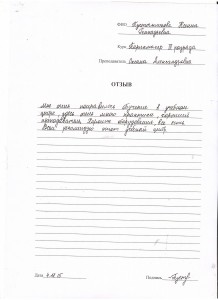 ФИО: Бустомилова Полина
Геннадьевна
Курс Парикмахер II разряда
Преподаватель Оксана Александровна
ОТЗЫВ
Мне очень понравилось обучение в учебном
центре, здесь очень много практики, хороший
преподаватель. Хорошее оборудование, все есть.
Всем рекомендую этот учебный центр.
Дата
Подпись